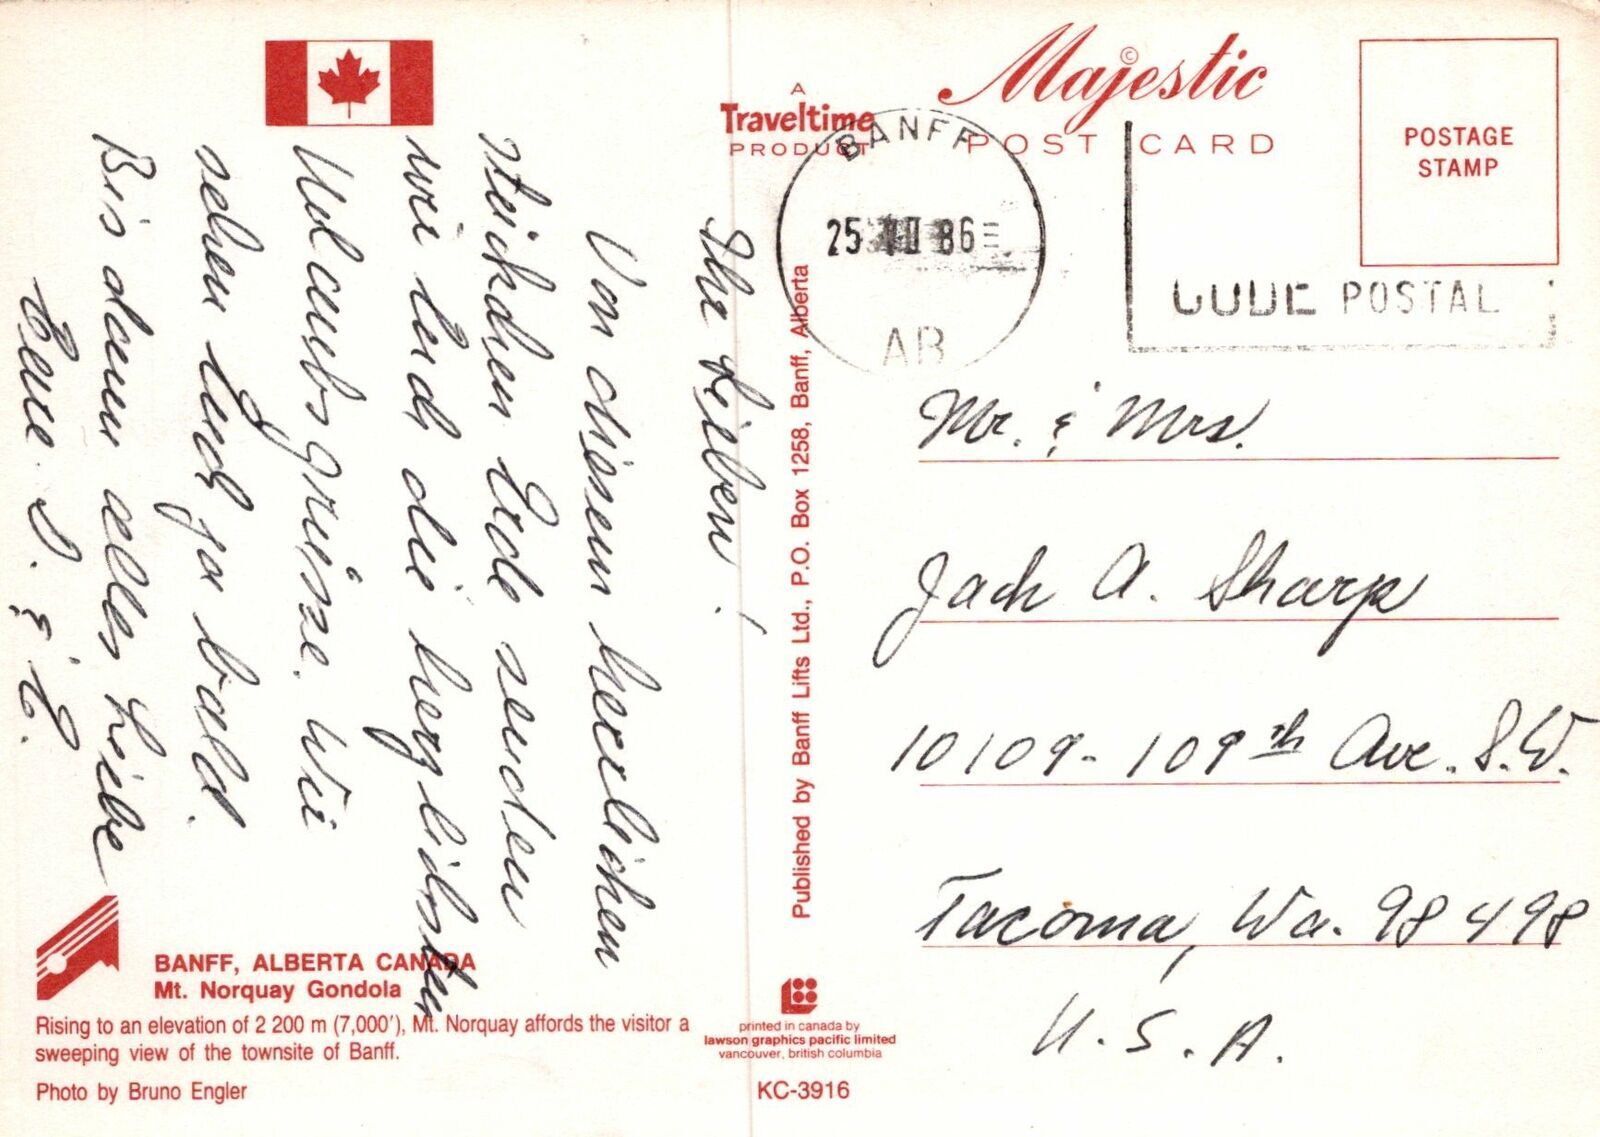 Ihr Lieben!
Von diesem herrlichen
Stückchen Erde senden
wir Euch die herzlichsten
Urlaubsgrüsse. Wir
sehen Euch ja bald.
Bis dann alles Liebe
Eure I. & E.
BANFF, ALBERTA CANADA
Mt. Norquay Gondola
Rising to an elevation of 2 200 m (7,000'), Mt. Norquay affords the visitor a
sweeping view of the townsite of Banff.
Photo by Bruno Engler
A
Traveltime
PRODUCT
Published by Banff Lifts Ltd., P.O. Box 1258, Banff, Alberta
printed in canada by
lawson graphics pacific limited
vancouver, british columbia
KC-3916
Majestic ©
POST CARD
POSTAGE
STAMP
BANFF
25 86
AB
CODE POSTAL
Mr. & Mrs.
Jack A. Sharp
10109-109th Ave. S.W.
Tacoma, Wa. 98498
U.S.A.